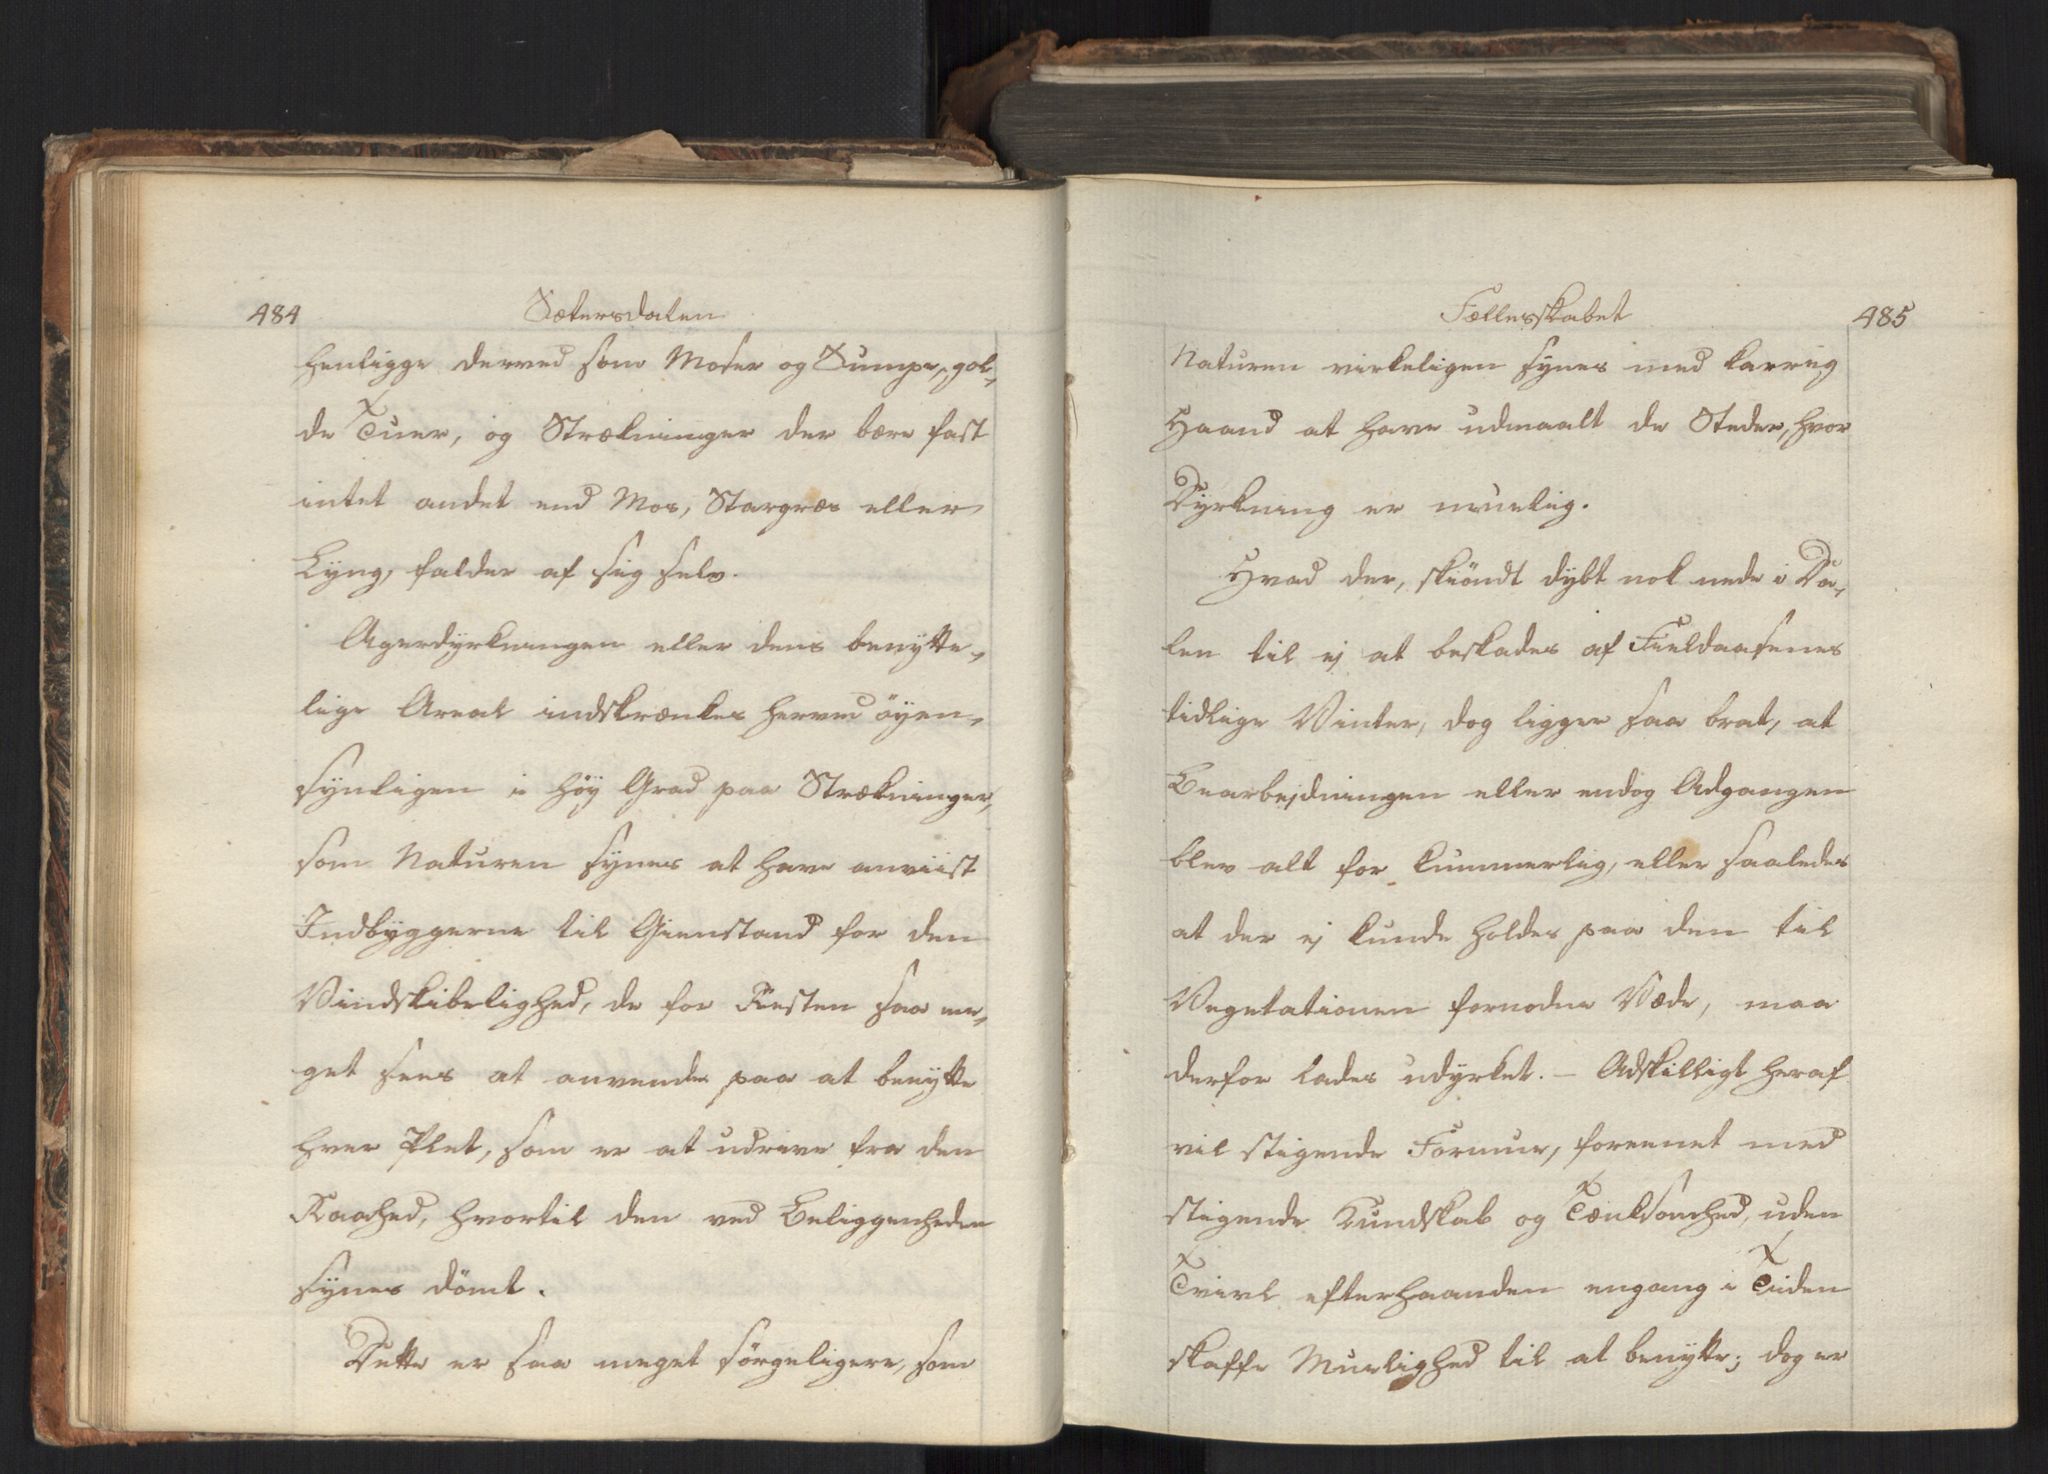 484
Sætersdalen
henligge derved som Moser og Sumpe, gol-
de Tuer, og Strækninger der bære fast
intet andet end Mos, Stargræs eller
Lyng, falder af sig selv.
Agerdyrkningen eller dens benytte-
lige Areal indskrænkes herved öyen-
synligen i höy Grad paa Strækninger,
som Naturen synes at have anviist
Indbyggerne til Gienstand for den
Vindskibelighed, de for Resten saa me-
get sees at anvende paa at benytte
hver Plet, som er at udrive fra den
Raahed, hvortil den ved Beliggenheden
synes dömt.
Dette er saa meget sörgeligere, som
Fællesskabet
485
Naturen virkeligen synes med karrig
Haand at have udmaalt de Steder, hvor
Dyrkning er muelig.
Hvad der, skiöndt dybt nok nede i Da-
len til ej at beskades af Fieldaasenes
tidlige Vinter, dog ligger saa brat, at
Bearbejdningen eller endog Adgangen
blev alt for kummerlig, eller saaledes
at der ej kunde holdes paa den til
Vegetationen fornødne Væde, maa
derfor lades udyrket. – Adskilligt heraf
vil stigende Formue, foreenet med
stigende Kundskab og Tænksomhed, uden
Tvivl efterhaanden engang i Tiden
skaffe Muelighed til at benytte; dog er